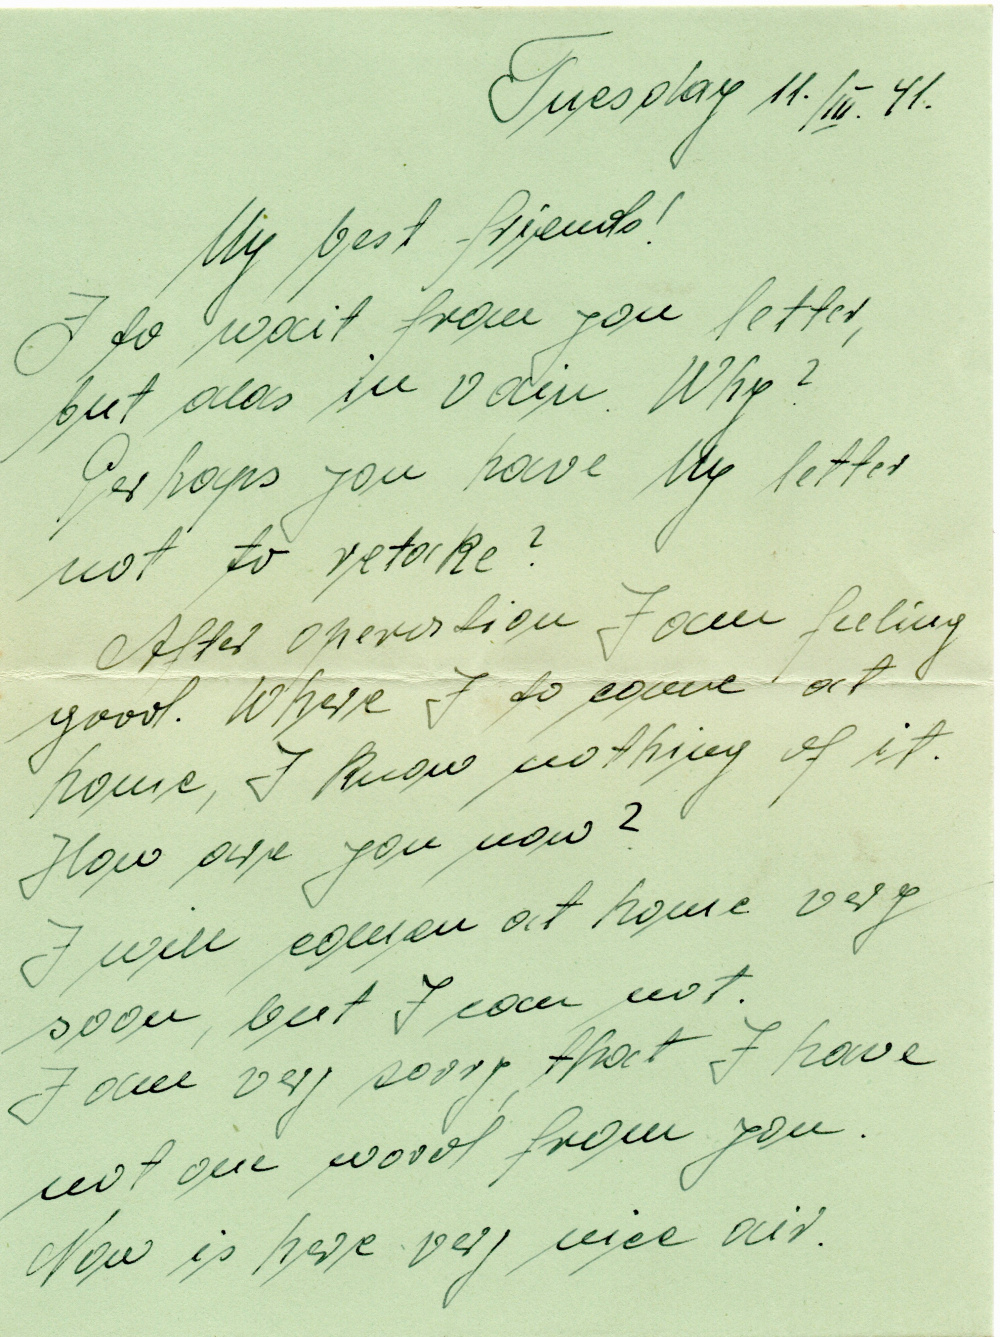 Tuesday 11./III. 41.
My best friends!
I to wait from you letter,
but alas in vain. Why?
Perhaps you have My letter
not to retake?
After operation I am feeling
good. Where I to came at
home, I know nothing of it.
How are you now?
I will coman at home very
soon, but I can not.
I am very sorry, that I have
not one word from you.
Now is here very nice air.